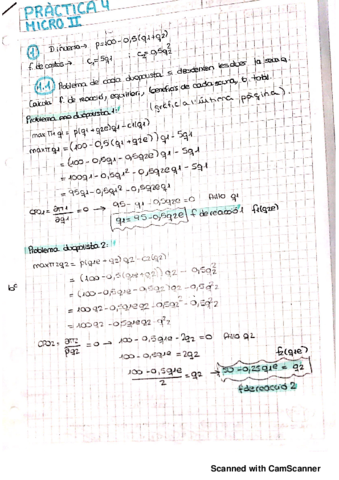 PRÁCTICA 4
MICRO II
① D inversa → p=100-0,5(q1+q2)
f. de costos → C1=5q1 ; C2=0,5q2²
1.1 Problema de cada duopolista si desciende la
Calcula f. de reacción, equilibrio, beneficios de cada b. total.
(gráfica última página).
Problema duopolista 1:
max π q1 = p(q1+q2e)q1 - c1(q1)
max π q1 = (100-0,5(q1+q2e))q1 - 5q1
= (100-0,5q1-0,5q2e)q1 - 5q1
= 100q1-0,5q1²-0,5q2eq1-5q1
= 95q1-0,5q1²-0,5q2eq1
CPO1: ∂π1/∂q1 =0 → 95-q1-0,5q2e=0 q1
q1=95-0,5q2e f de reacción 1 f1(q2e)
Problema duopolista 2:
max π2 q2 = p(q1e+q2)q2-c2(q2)
= (100-0,5(q1e+q2))q2-0,5q2²
= (100-0,5q1e-0,5q2)q2-0,5q2²
= 100q2-0,5q1eq2-0,5q2²-0,5q2²
= 100q2-0,5q1eq2-q2²
CPO2: ∂π2/∂q2 =0 → 100-0,5q1e-2q2=0 q2
100-0,5q1e=2q2 f2(q1e)
100-0,5q1e/2 =q2 → 50-0,25q1e=q2
f de reacción 2
Scanned with CamScanner